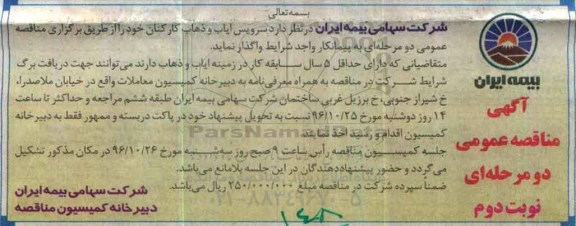 بسمه تعالی
شرکت سهامی بیمه ایران در نظر دارد سرویس ایاب و ذهاب کارکنان خود را از طریق برگزاری مناقصه
عمومی دو مرحله‌ای به پیمانکار واجد شرایط واگذار نماید.
متقاضیانی که دارای حداقل ۵ سال سابقه کار در زمینه ایاب و ذهاب دارند می‌توانند جهت دریافت برگ
شرایط شرکت در مناقصه به همراه معرفی‌نامه به دبیرخانه کمیسیون معاملات واقع در خیابان ملاصدرا،
خ شیراز جنوبی، خ برزیل غربی ساختمان شرکت سهامی بیمه ایران طبقه ششم مراجعه و حداکثر تا ساعت
۱۴ روز دوشنبه مورخ ۹۶/۱۰/۲۵ نسبت به تحویل پیشنهاد خود در پاکت دربسته و ممهور فقط به دبیرخانه
کمیسیون اقدام و رسید اخذ نمایند.
جلسه کمیسیون مناقصه رأس ساعت ۹ صبح روز سه‌شنبه مورخ ۹۶/۱۰/۲۶ در مکان مذکور تشکیل
می‌گردد و حضور پیشنهاددهندگان در این جلسه بلامانع می‌باشد.
ضمناً سپرده شرکت در مناقصه مبلغ ۲۵۰/۰۰۰/۰۰۰ ریال می‌باشد.
شرکت سهامی بیمه ایران
دبیرخانه کمیسیون مناقصه
بیمه ایران
آگهی
مناقصه عمومی
دو مرحله‌ای
نوبت دوم